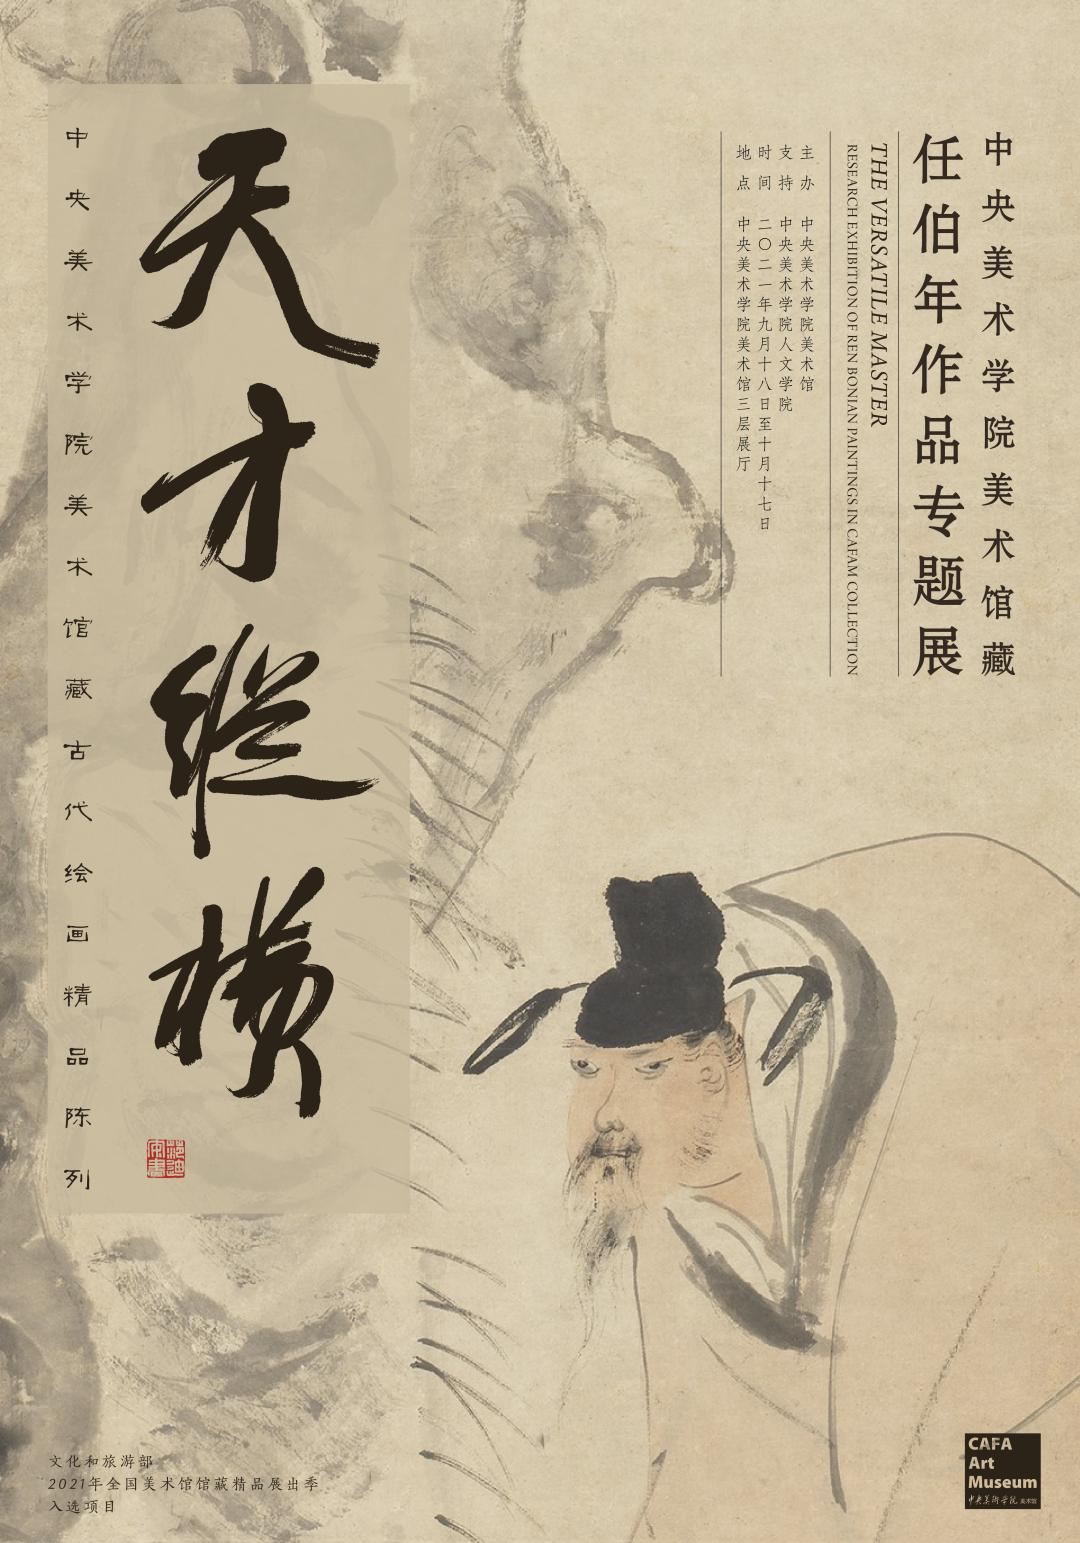 中央美术学院美术馆藏
任伯年作品专题展
THE VERSATILE MASTER
RESEARCH EXHIBITION OF REN BONIAN PAINTINGS IN CAFAM COLLECTION
主办 中央美术学院美术馆
支持 中央美术学院人文学院
时间 二〇二一年九月十八日至十月十七日
地点 中央美术学院美术馆三层展厅
天才纵横
中央美术学院美术馆藏古代绘画精品陈列
文化和旅游部
2021年全国美术馆馆藏精品展出季
入选项目
CAFA
Art
Museum
中央美術学院 美术馆